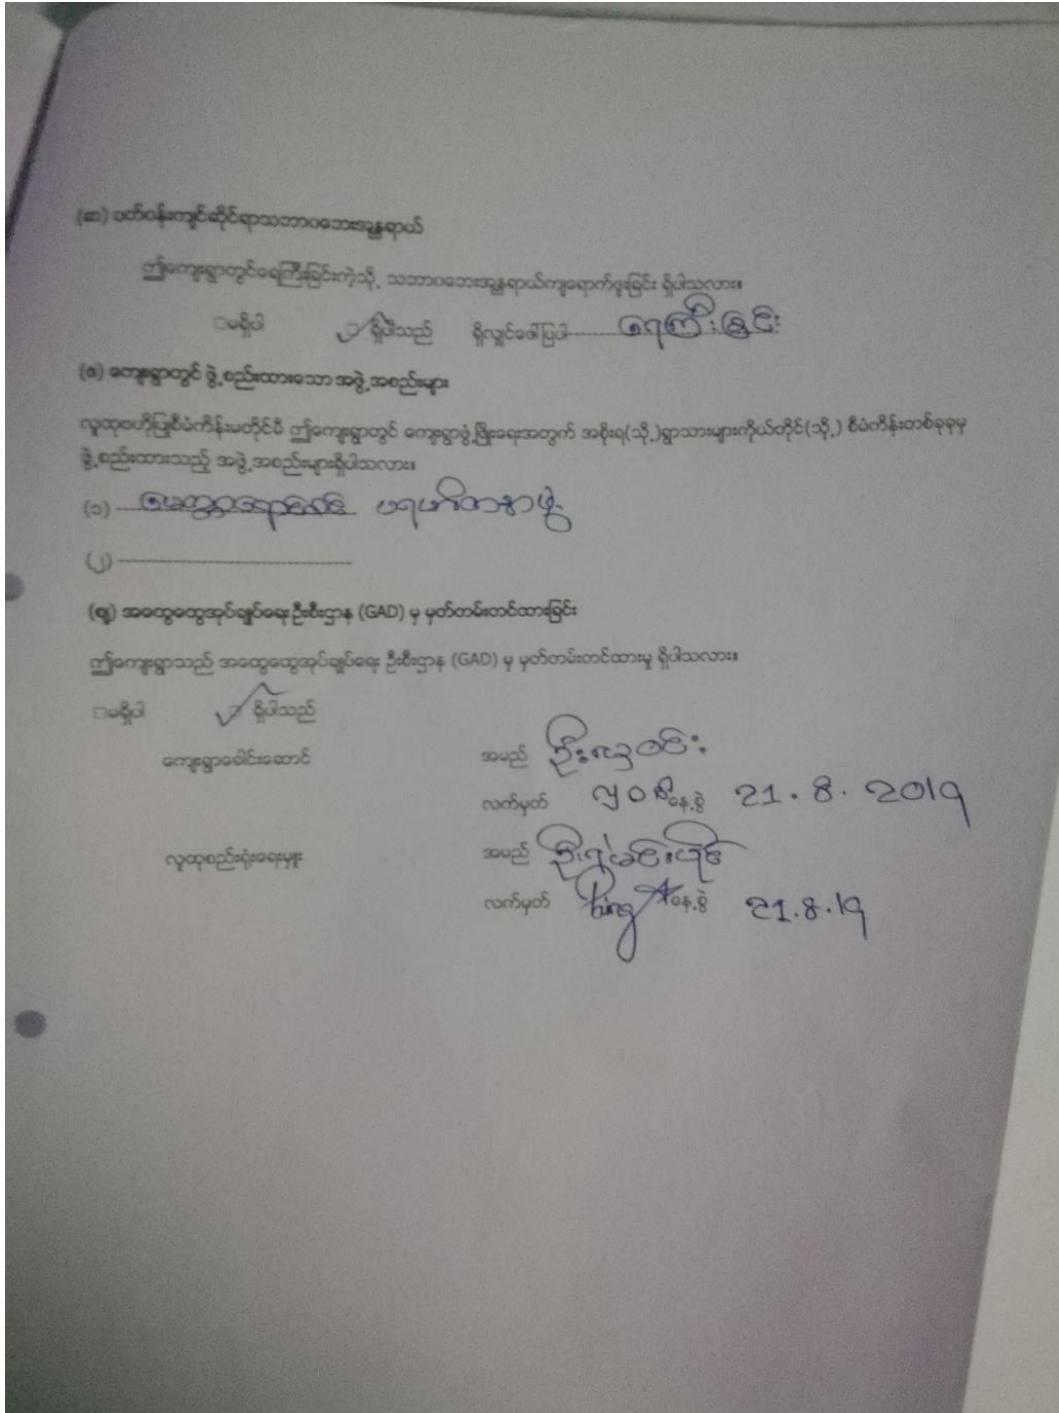 (ဆ) ပတ်ဝန်းကျင်ဆိုင်ရာသဘာဝဘေးအန္တရာယ်
ဤကျေးရွာတွင်ရေကြီးခြင်းကဲ့သို့ သဘာဝဘေးအန္တရာယ်ကျရောက်ဖူးခြင်း ရှိပါသလား။
□မရှိပါ ☑ ရှိပါသည် ရှိလျှင်ဖေါ်ပြပါ---------- ရေကြီးခြင်း
(ဇ) ကျေးရွာတွင် ဖွဲ့စည်းထားသော အဖွဲ့အစည်းများ
လူထုဗဟိုပြုစီမံကိန်းမတိုင်မီ ဤကျေးရွာတွင် ကျေးရွာဖွံ့ဖြိုးရေးအတွက် အစိုးရ(သို့)ရွာသားများကိုယ်တိုင်(သို့) စီမံကိန်းတစ်ခုခုမှ
ဖွဲ့စည်းထားသည့် အဖွဲ့အစည်းများရှိပါသလား။
(၁) မေတ္တာရောင်ဝင်း ပရဟိတနာဖွဲ့
(၂) --------------------------------
(စျ) အထွေထွေအုပ်ချုပ်ရေးဦးစီးဌာန (GAD) မှ မှတ်တမ်းတင်ထားခြင်း
ဤကျေးရွာသည် အထွေထွေအုပ်ချုပ်ရေး ဦးစီးဌာန (GAD) မှ မှတ်တမ်းတင်ထားမှု ရှိပါသလား။
□မရှိပါ ☑ ရှိပါသည်
ကျေးရွာခေါင်းဆောင် အမည် ဦး
လက်မှတ် နေ့စွဲ 21.8.2019
လူထုစည်းရုံးရေးမှူး အမည် ဦး
လက်မှတ် နေ့စွဲ 21.8.19